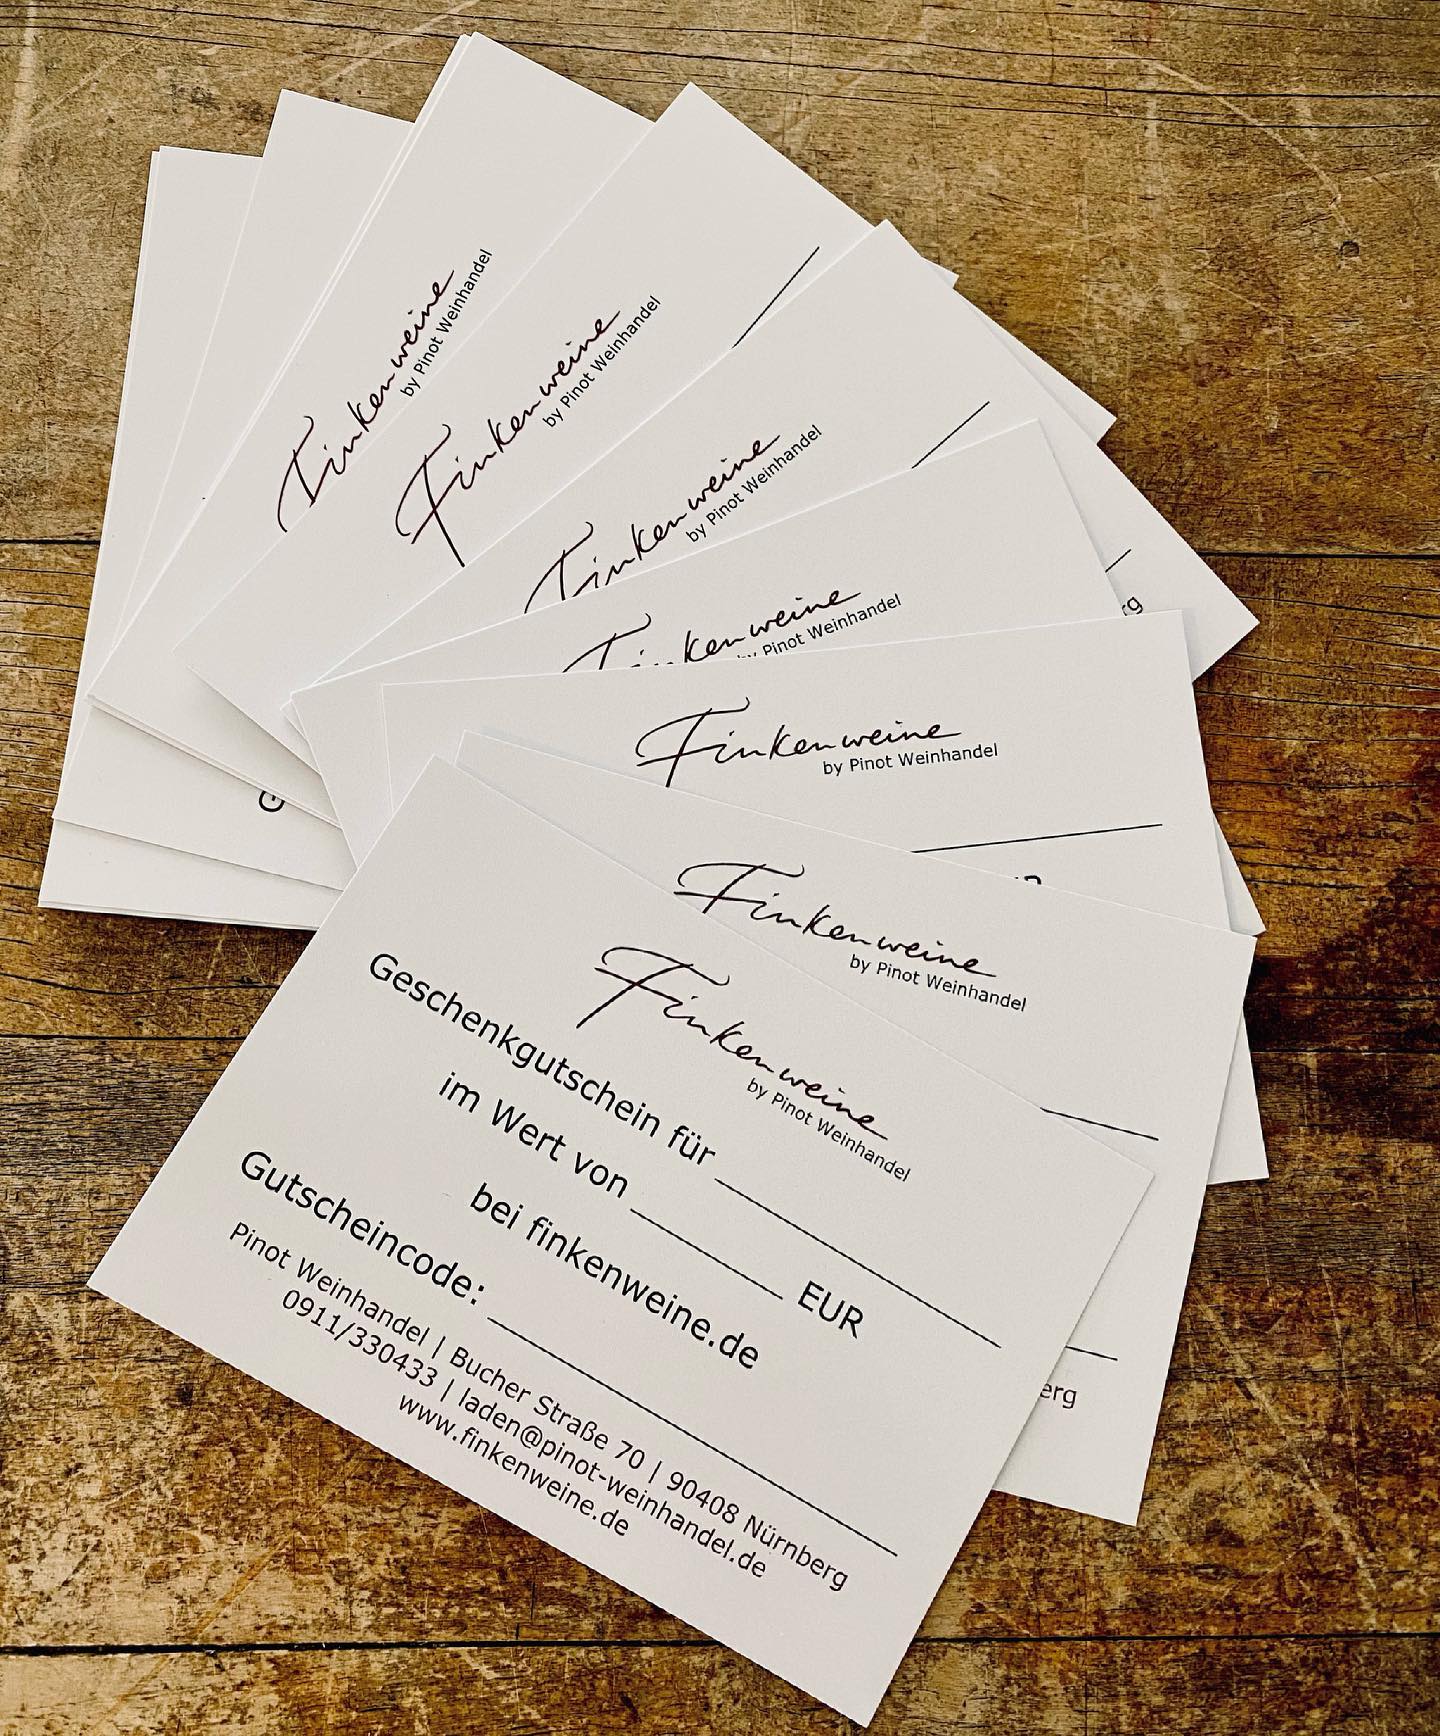 Finkenweine
by Pinot Weinhandel
Finkenweine
by Pinot Weinhandel
Finkenweine
by Pinot Weinhandel
Finkenweine
by Pinot Weinhandel
Finkenweine
by Pinot Weinhandel
Finkenweine
by Pinot Weinhandel
Finkenweine
by Pinot Weinhandel
Geschenkgutschein für ____________
im Wert von ______ EUR
bei finkenweine.de
Gutscheincode: ____________
Pinot Weinhandel | Bucher Straße 70 | 90408 Nürnberg
0911/330433 | laden@pinot-weinhandel.de
www.finkenweine.de